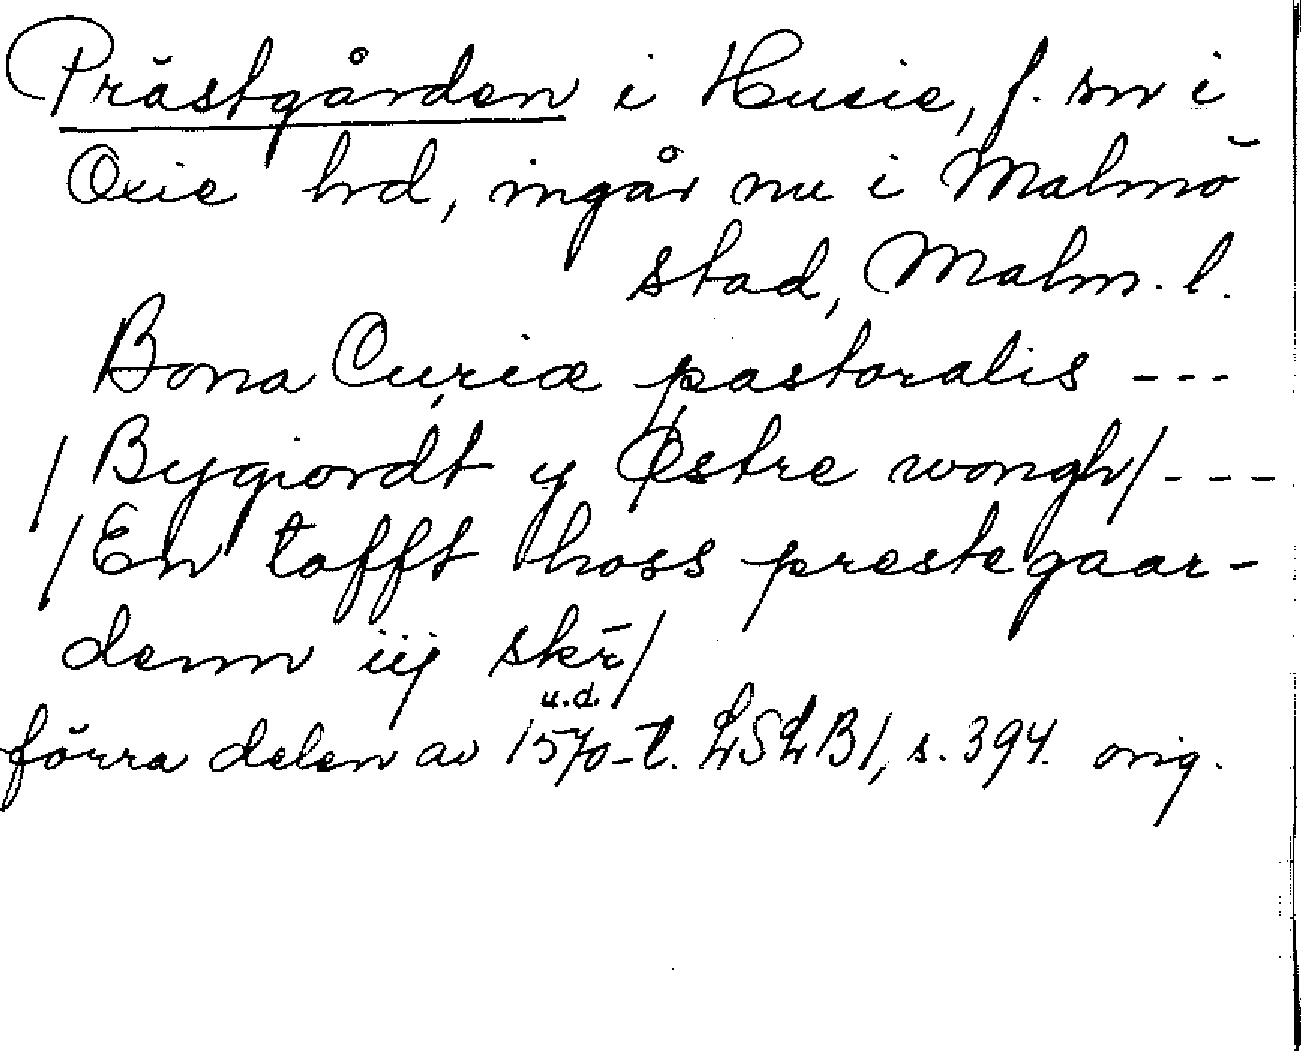 Prästgården i Husie, f. sn i
Oxie hrd, ingår nu i Malmö
stad, Malm. l.
Bona Curiæ pastoralis ---
/Bygiordt y Østre wongh/ ---
/En tofft hoss prestegaar-
denn iij skr̄/
u.d.
förra delen av 1570-t. LSLB1, s. 394. orig.